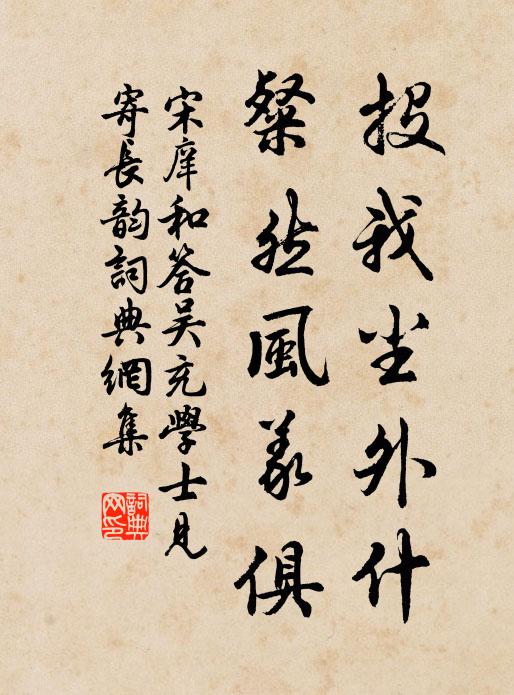 投我尘外什
粲然風義俱
宋庠和答吴充學士見
寄長韵詞典網集
詞典
网印